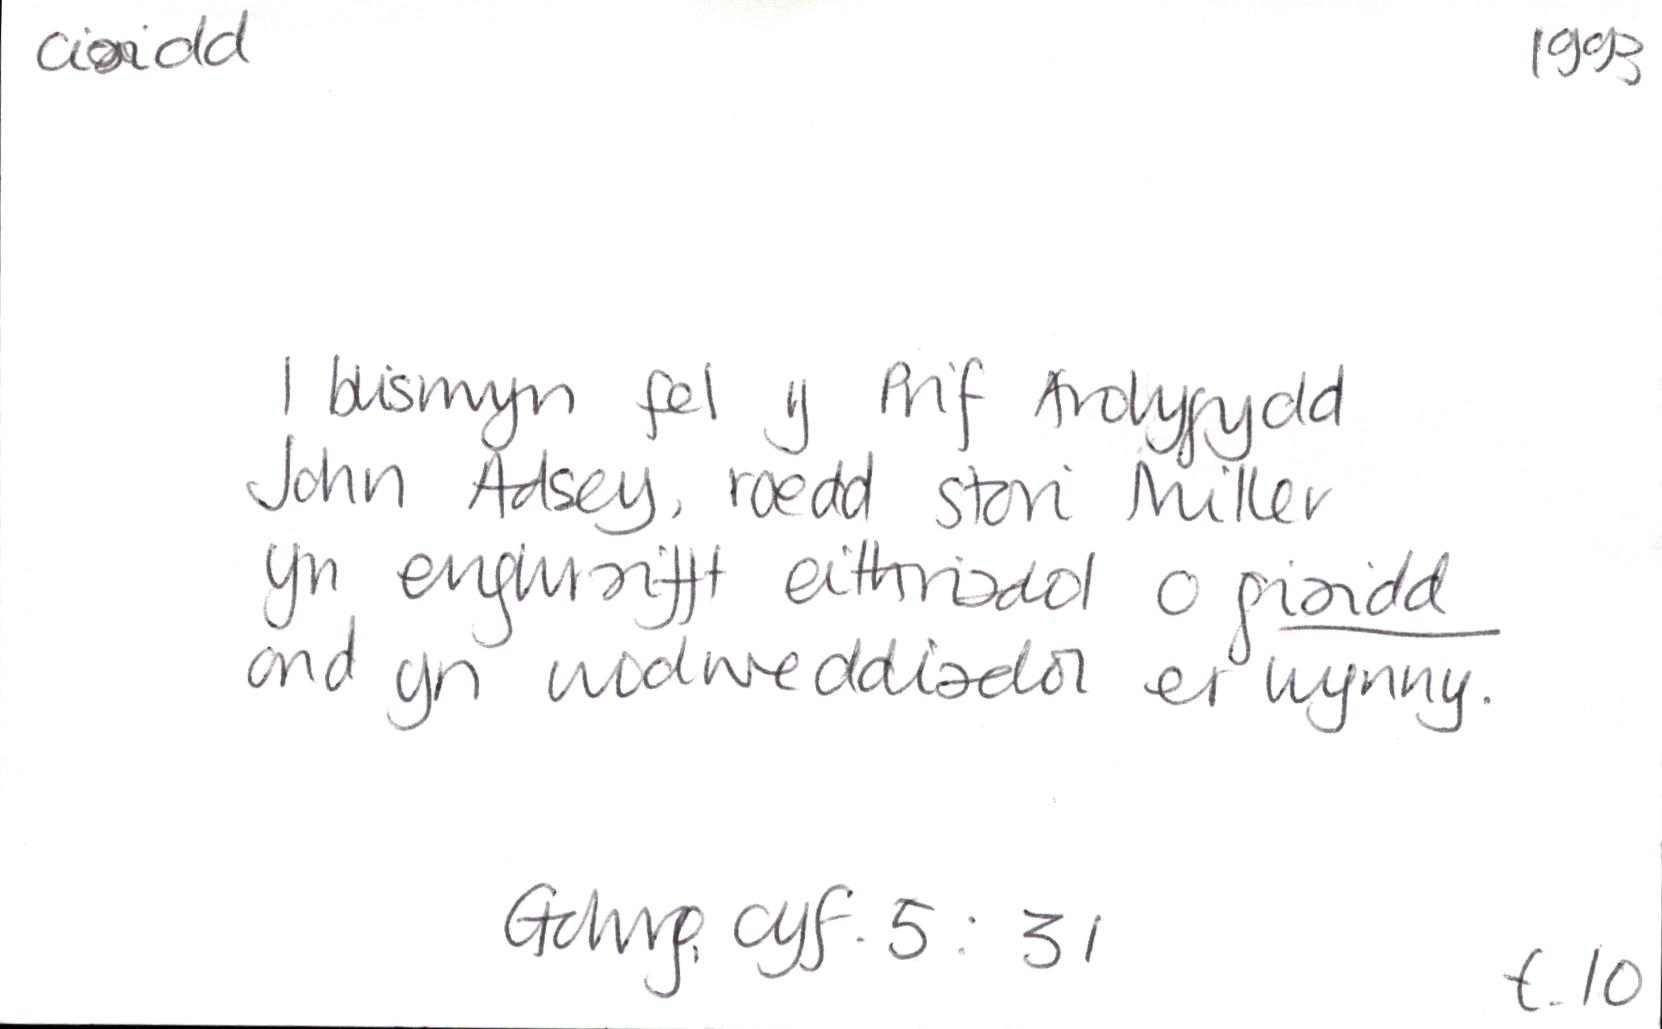 ciaidd
1993
I blismyn fel y Prif Arolygydd
John Adsey, roedd stori Miller
yn enghraifft eithriadol o giaidd
ond yn nodweddiadol er hynny.
Golwg, cyf. 5 : 31
t. 10